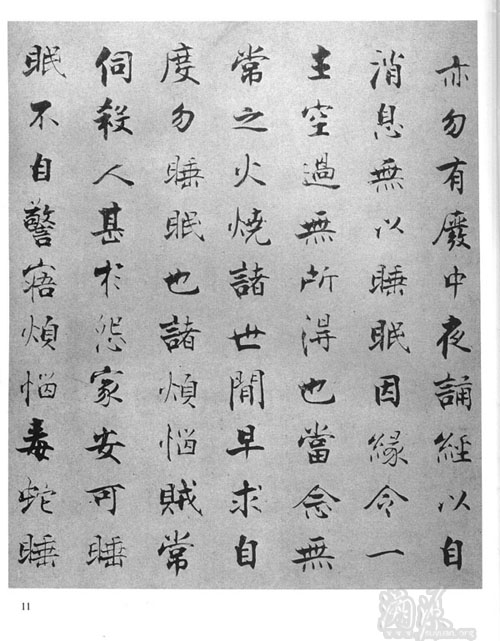 亦勿有廢中夜誦經以自
消息無以睡眠因緣令一
生空過無所得也當念無
常之火燒諸世間早求自
度勿睡眠也諸煩惱賊常
伺殺人甚於怨家安可睡
眠不自警寤煩惱毒蛇睡
11